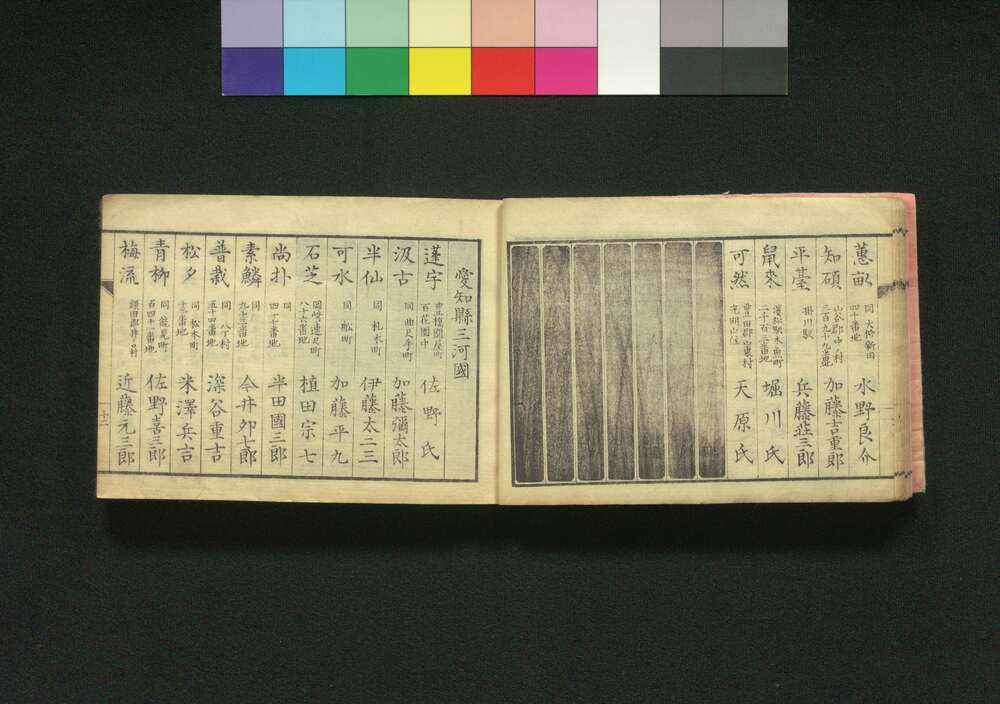 蕙畝 同大柳新田 四十番地 水野良介
知碩 山名郡中村 三百九十九番地 加藤吉重郎
平臺 掛川駅 兵藤莊三郎
鼠來 濱松駅木魚町 二千百三番地 堀川氏
可然 豊田郡山東村 光明山住 天原氏
愛知縣三河國
蓬宇 豊橋関屋町 百花園中 佐野氏
汲古 同曲尺手町 加藤彌太郎
半仙 同札木町 伊藤太二三
可水 同舩町 加藤平九
石芝 岡崎連尺町 八十六番地 植田宗七
尚扑 同 四十七番地 半田國三郎
素鱗 同 九十三番地 今井夘七郎
普栽 同八丁村 五十四番地 深谷重吉
松夕 同松本町 十三番地 米澤兵吉
青柳 同能見町 百四十一番地 佐野喜三郎
梅流 近藤元三郎
十二